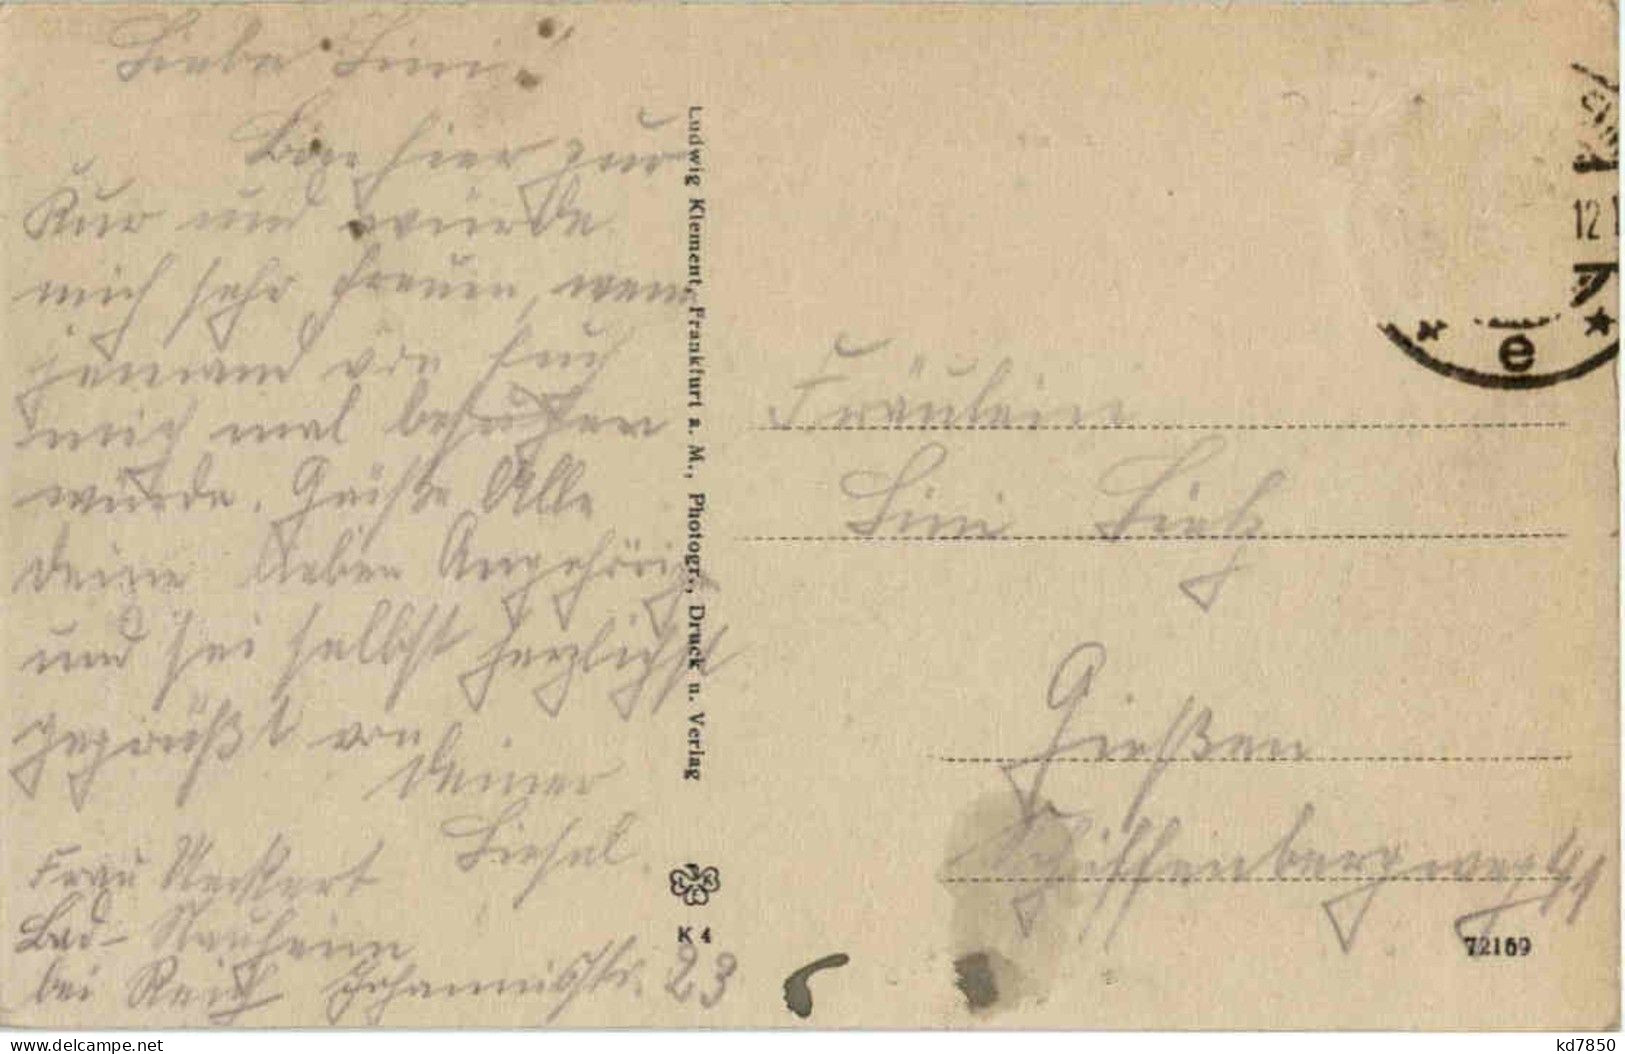 Liebe Lini!
Bin hier zur
Kur und würde
mich sehr freuen, wenn
jemand von Euch
mich mal besuchen
würde. Grüße Alle
deine lieben Angehörig
und sei selbst herzlichst
gegrüßt von
deiner
Liesel.
Frau
Bad-Nauheim
bei Reich Johannisstr. 23
Ludwig Klement, Frankfurt a. M., Photogr., Druck u. Verlag
K 4
12
* e *
Fräulein
Lini
Gießen
Schiffenbergerweg
72169
kd7850